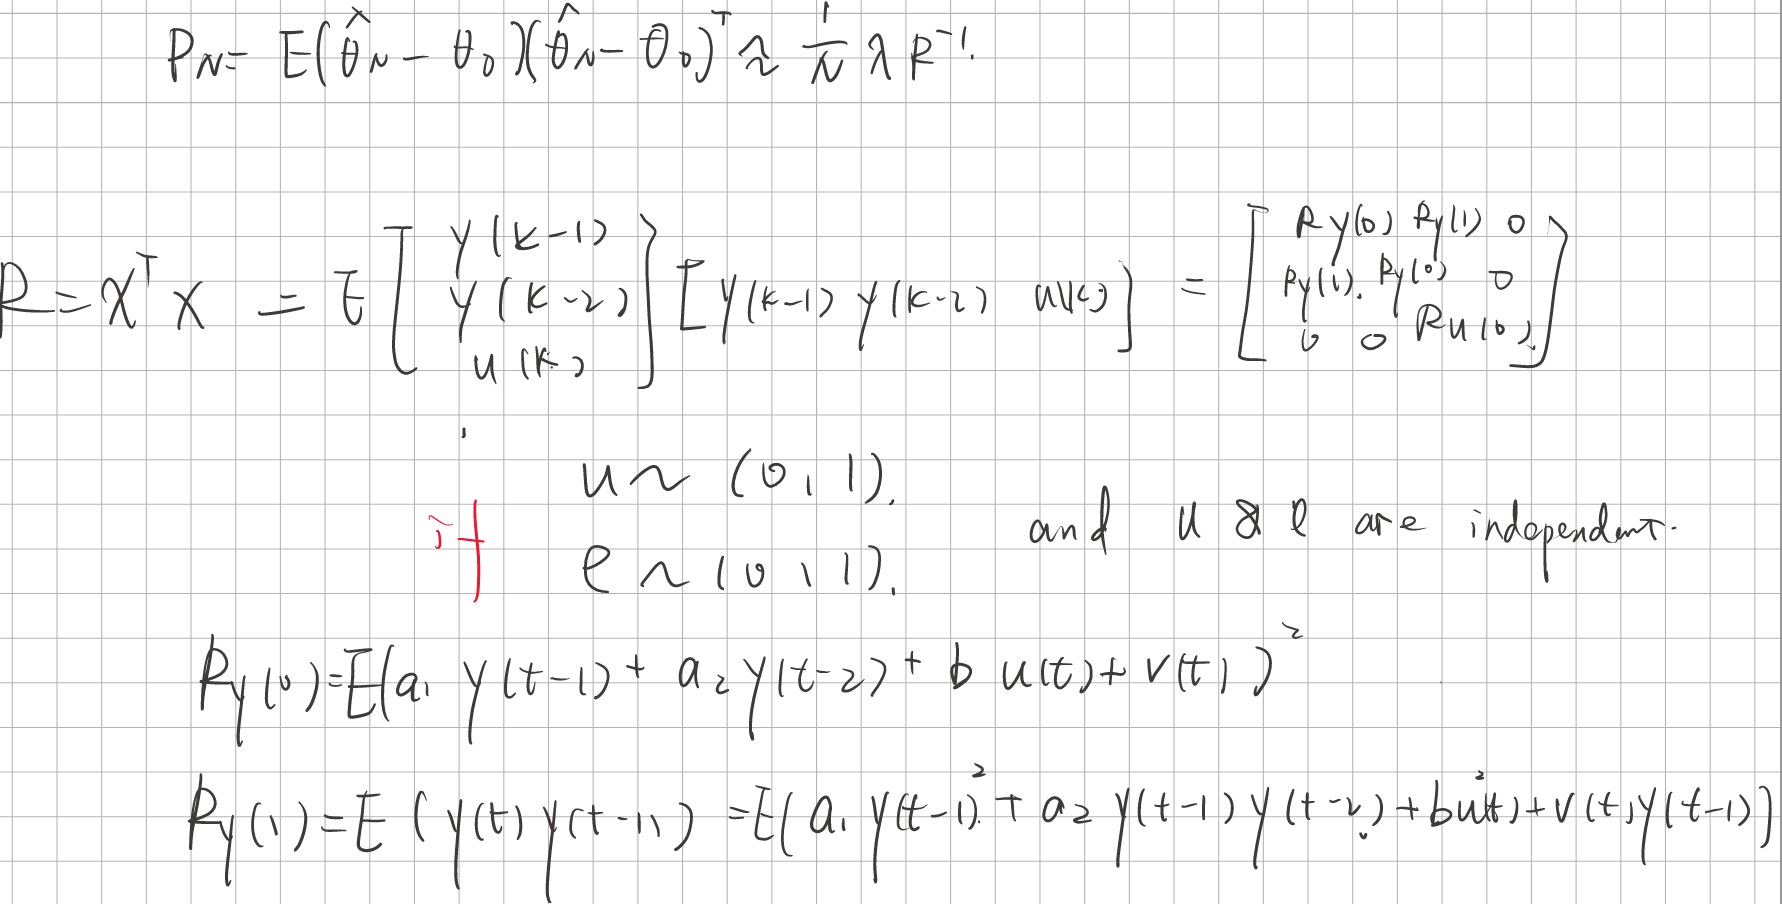 P_N = E(θ̂_N − θ_0)(θ̂_N − θ_0)^T ≈ 1/N λ R^{-1}.
R = X^T X = E [y(k-1) y(k-2) u(k)] [y(k-1) y(k-2) u(k)] = [Ry(0) Ry(1) 0 Ry(1). Ry(0) 0 0 0 Ru(0)]
u ~ (0, 1).
and u & e are independent.
e ~ (0, 1).
Ry(0) = E(a_1 y(t-1) + a_2 y(t-2) + b u(t) + v(t))^2
Ry(1) = E(y(t) y(t-1)) = E(a_1 y(t-1)^2 + a_2 y(t-1) y(t-2) + b u^2(t) + v(t) y(t-1))